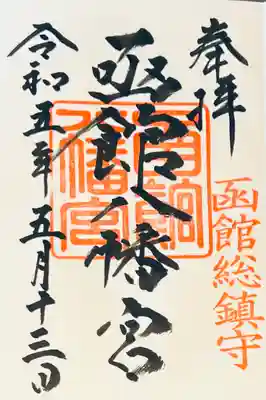 奉拝
函館総鎮守
函館八幡宮
函館八幡宮
令和五年五月十三日